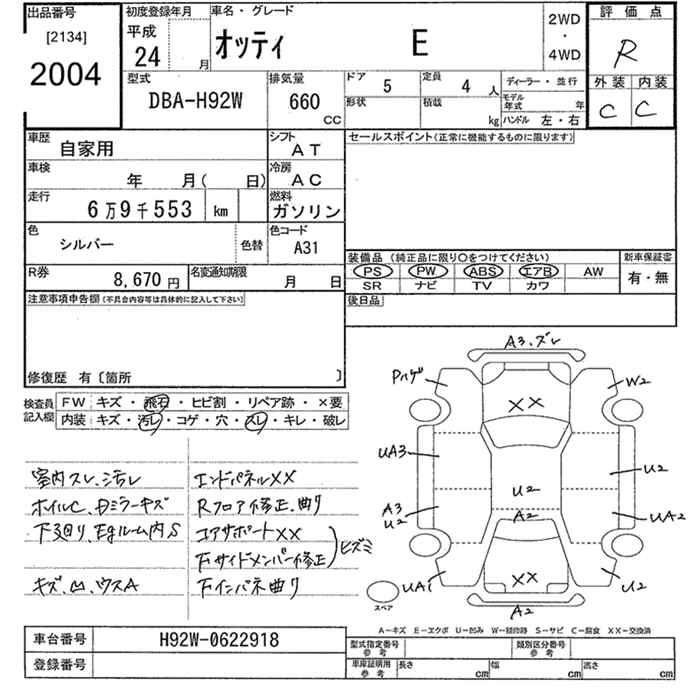 出品番号
[2134]
2004
初度登録年月
平成
24 月
車名・グレード
オッティ E
2WD
・
4WD
評価点
R
外装 内装
C C
型式
DBA-H92W
排気量
660
CC
ドア 5
定員 4 人
形状
積載 kg
ディーラー・並行
モデル年式 年
ハンドル 左・右
車歴
自家用
シフト
AT
車検
年 月( 日)
冷房
AC
走行
6万9千553 km
燃料
ガソリン
色
シルバー
色替
色コード
A31
R券
8,670 円
名変通知期限
月 日
セールスポイント(正常に機能するものに限ります)
装備品 (純正品に限り〇をつけてください)
新車保証書
PS PW ABS エアB AW
有・無
SR ナビ TV カワ
後日品
注意事項申告欄(不具合内容等は具体的に記入して下さい)
修復歴 有〔箇所 〕
検査員
記入欄
FW キズ・飛石・ヒビ割・リペア跡・×要
内装 キズ・汚レ・コゲ・穴・スレ・キレ・破レ
室内スレ、汚レ
ホイルC、Dミラーキズ
下廻リ、Egルーム内S
キズ、凹、ウスA
エンドパネルXX
Rフロア修正、曲り
コアサポートXX
Fサイドメンバー修正
ヒズミ
Fインパネ曲り
A3、ズレ
Pハゲ
W2
XX
UA3
U2
U2
A3
U2
A2
UA2
UA1
XX
U2
A2
スペア
A-キズ E-エクボ U-凹み W-補修跡 S-サビ C-腐食 XX-交換済
車台番号
H92W-0622918
登録番号
型式指定番号
参考
類別区分番号
参考
車庫証明用
参考
長さ cm
幅 cm
高さ cm